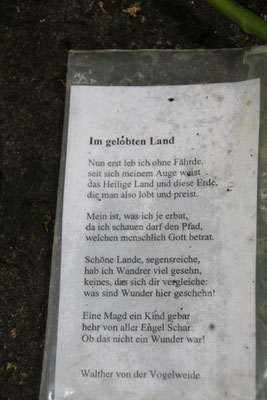 Im gelobten Land
Nun erst leb ich ohne Fährde,
seit sich meinem Auge weist
das Heilige Land und diese Erde,
die man also lobt und preist.
Mein ist, was ich je erbat,
da ich schauen darf den Pfad,
welchen menschlich Gott betrat.
Schöne Lande, segensreiche,
hab ich Wandrer viel gesehn,
keines, das sich dir vergleiche:
was sind Wunder hier geschehn!
Eine Magd ein Kind gebar
hehr von aller Engel Schar:
Ob das nicht ein Wunder war!
Walther von der Vogelweide